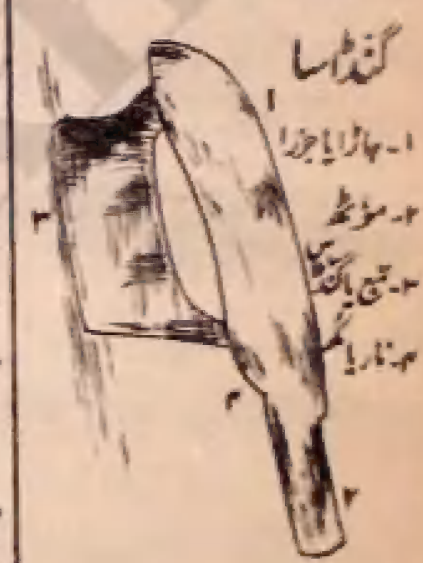 گنڈاسا
۱۔ جاڑا یا جزرا
۲۔ موٹھ
۳۔ تیغ یا گنڈس
۴۔ نار یا
۱
۳
۴
۲